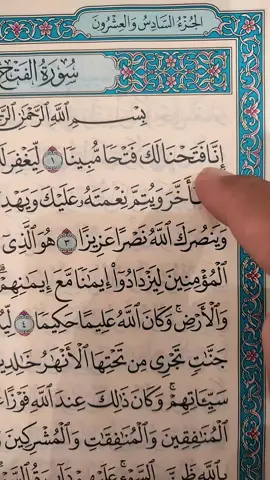 الجُزْءُ السَّادِسُ وَالعِشْرُونَ
سُورَةُ الفَتْحِ
بِسْمِ اللَّهِ الرَّحْمَٰنِ
إِنَّا فَتَحْنَا لَكَ فَتْحًا مُّبِينًا ١ لِّيَغْفِرَ
تَأَخَّرَ وَيُتِمَّ نِعْمَتَهُۥ عَلَيْكَ وَيَهْدِ
وَيَنصُرَكَ اللَّهُ نَصْرًا عَزِيزًا ٣ هُوَ الَّذِي
الْمُؤْمِنِينَ لِيَزْدَادُوٓا۟ إِيمَٰنًا مَّعَ إِيمَٰنِهِمْ
وَالْأَرْضِ وَكَانَ اللَّهُ عَلِيمًا حَكِيمًا ٤
جَنَّٰتٍ تَجْرِي مِن تَحْتِهَا الْأَنْهَٰرُ خَٰلِدِ
سَيِّـَٔاتِهِمْ وَكَانَ ذَٰلِكَ عِندَ اللَّهِ فَوْزًا
الْمُنَٰفِقِينَ وَالْمُنَٰفِقَٰتِ وَالْمُشْرِكِينَ
بِاللَّهِ ظَنَّ السَّوْءِ عَلَيْهِمْ دَآئِرَةُ